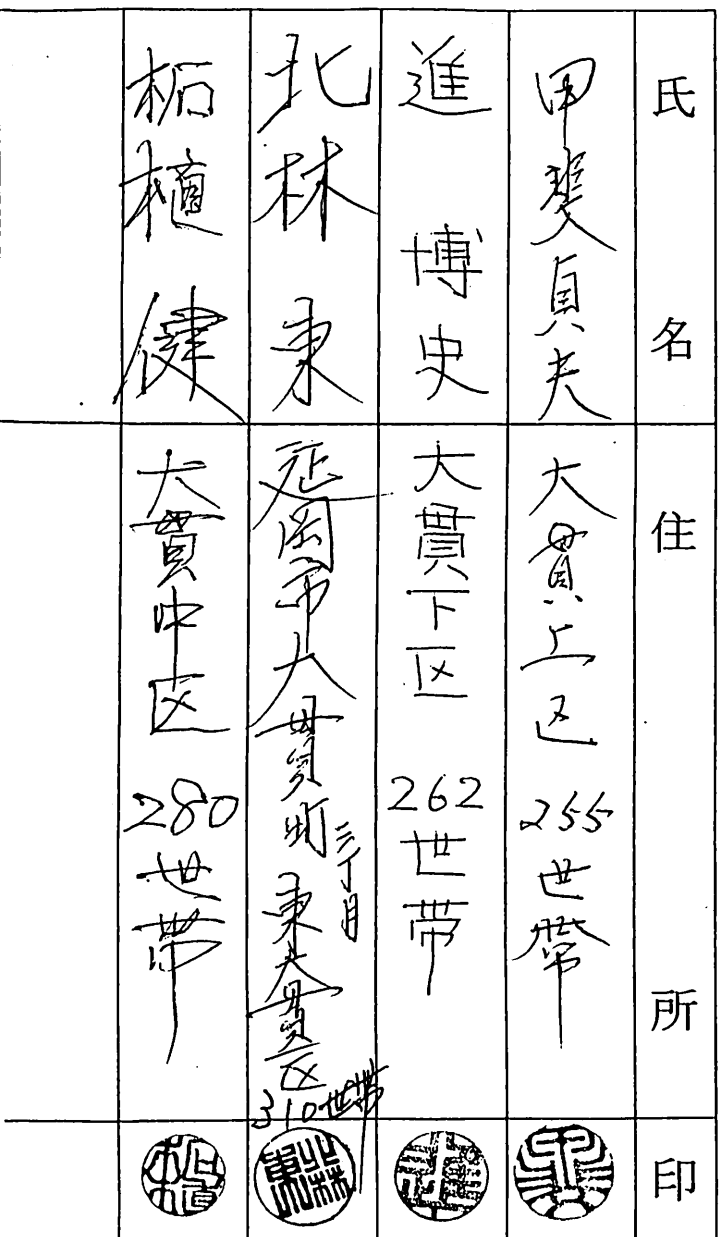 氏名 住所 印
甲斐貞夫 大貫上区 255世帯
進 博史 大貫下区 262世帯
北林 東 延岡市大貫町三丁目 東大貫区 310世帯 北林東
柘植 健 大貫中区 280世帯 柘植